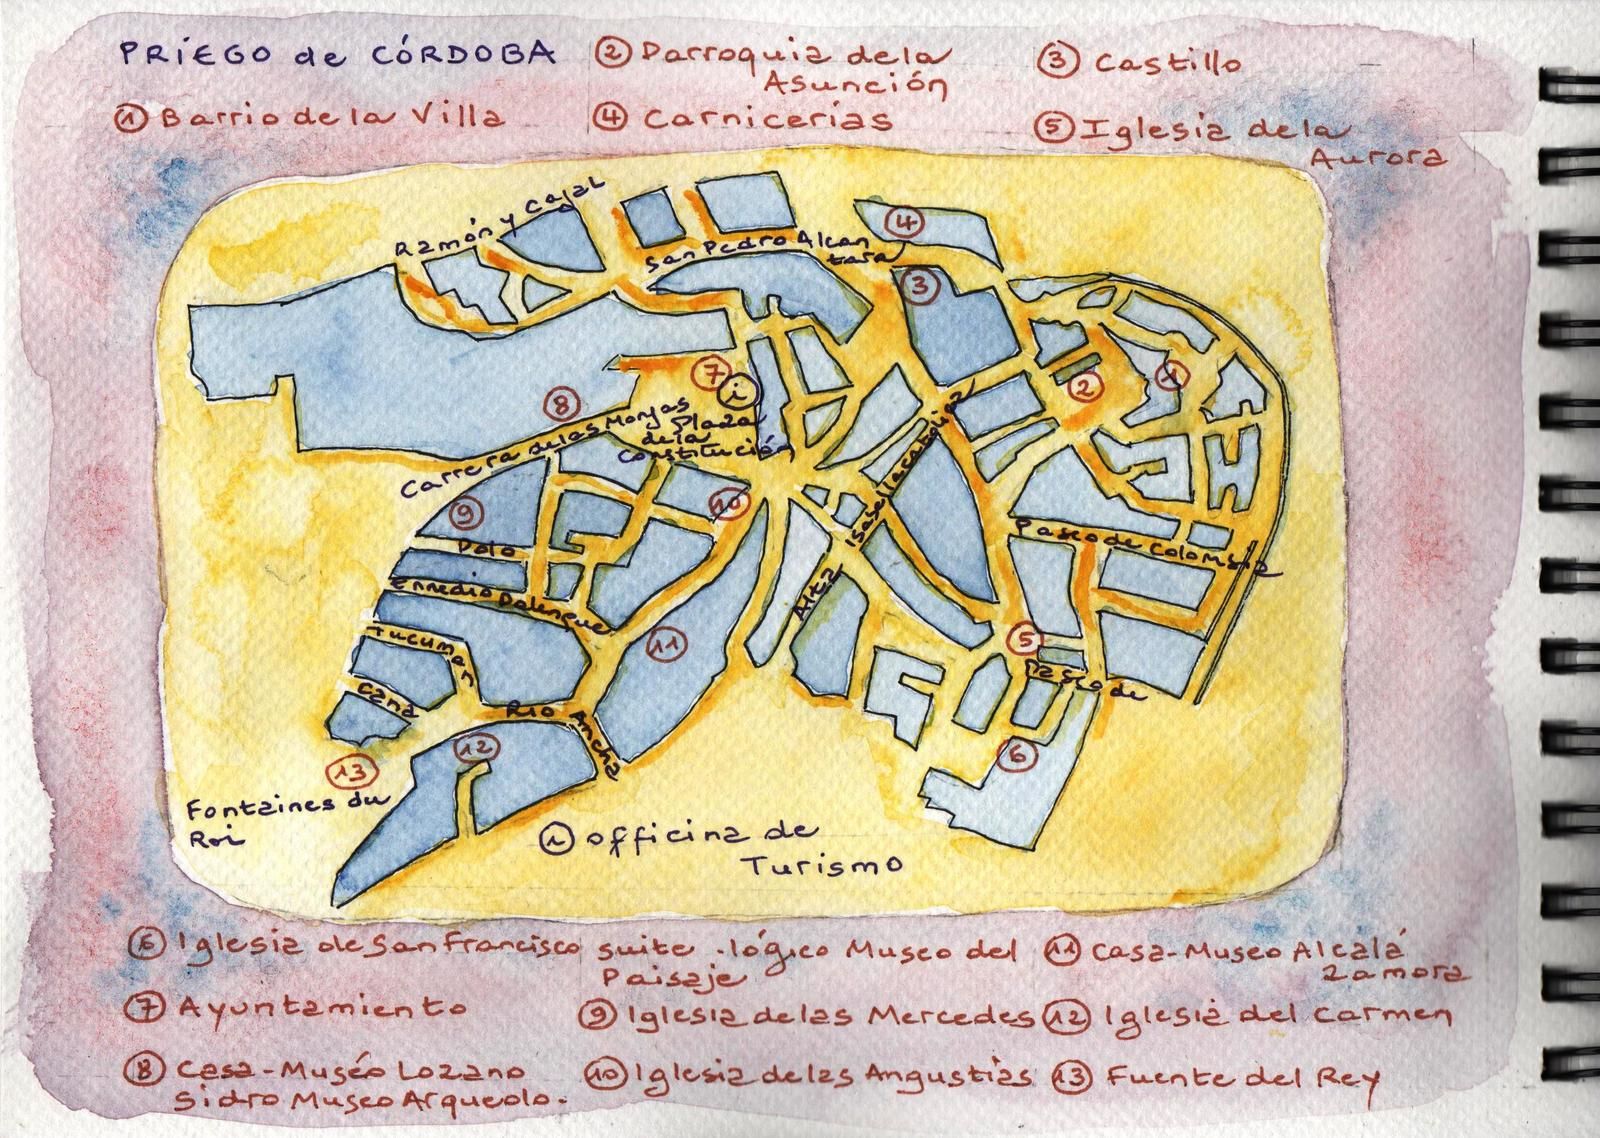 PRIEGO de CÓRDOBA
② Parroquia de la
Asunción
③ Castillo
① Barrio de la Villa
④ Carnicerías
⑤ Iglesia de la
Aurora
Ramón y Cajal
San Pedro Alcan
tara
④
③
①
②
⑦
i
⑧
Carrera de las Monjas
Plaza
de la
Constitución
⑨
⑩
Polo
Alta Isabel la católica
Paseo de Colombia
Tucuman
Cana
Rio Ancha
⑪
⑤
Paseo de
⑥
⑫
⑬
Fontaines du
Roi
i officina de
Turismo
⑥ Iglesia de San Francisco
⑦ Ayuntamiento
⑧ Casa-Muséo Lozano
Sidro Museo Arqueolo.
suite .lógico Museo del
Paisaje
⑨ Iglesia de las Mercedes
⑩ Iglesia de las Angustias
⑪ Casa-Museo Alcalá
Zamora
⑫ Iglesia del Carmen
⑬ Fuente del Rey